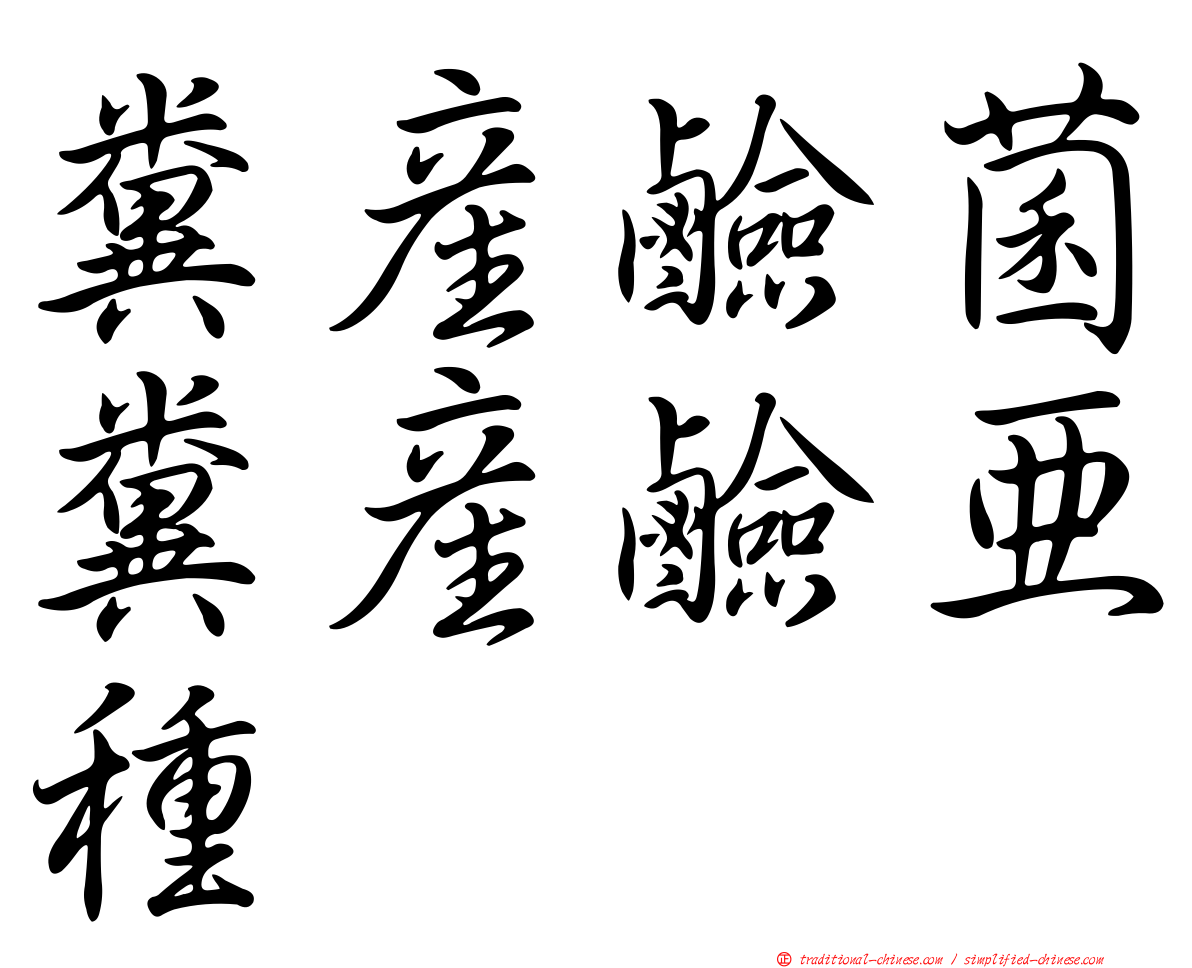 糞產鹼菌
糞產鹼亞
種
正 traditional-chinese.com / simplified-chinese.com